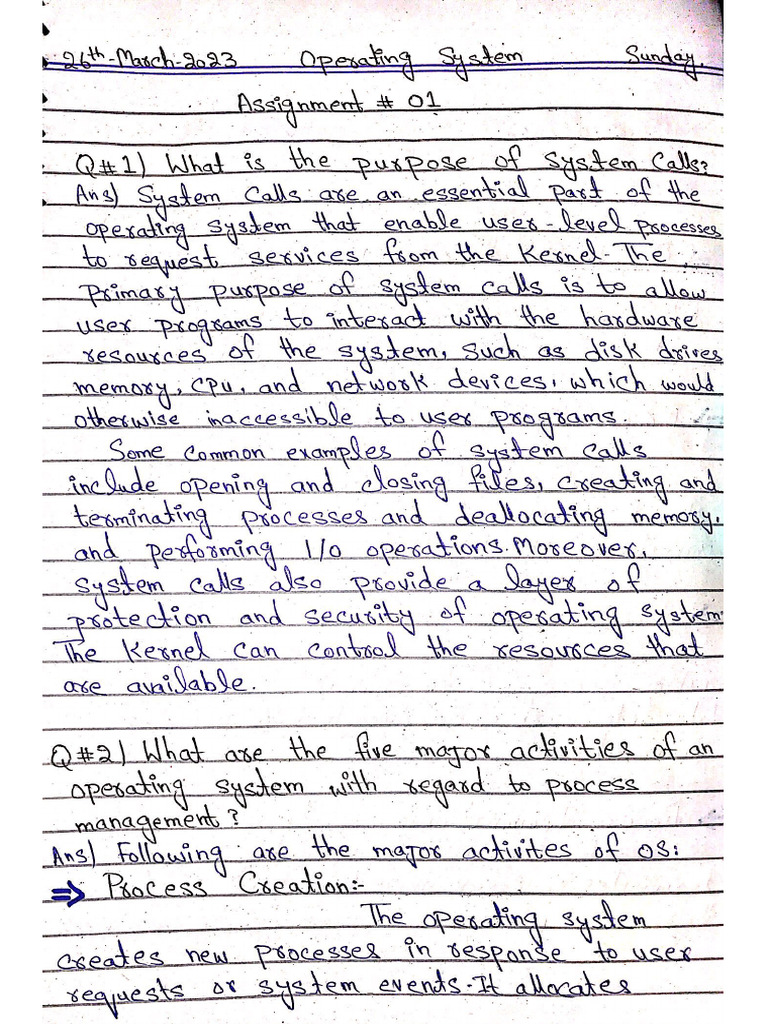 26th-March-2023 Operating System Sunday.
Assignment # 01
Q#1) What is the purpose of System Calls?
Ans) System Calls are an essential part of the
operating system that enable user-level processes
to request services from the Kernel. The
primary purpose of system calls is to allow
user programs to interact with the hardware
resources of the system, such as disk drives
memory, CPU, and network devices, which would
otherwise inaccessible to user programs.
Some common examples of system calls
include opening and closing files, creating and
terminating processes and deallocating memory,
and performing I/O operations. Moreover,
system calls also provide a layer of
protection and security of operating system.
The Kernel can control the resources that
are available.
Q#2) What are the five major activities of an
operating system with regard to process
management?
Ans) Following are the major activites of OS:
⇒ Process Creation:-
The operating system
creates new processes in response to user
requests or system events. It allocates